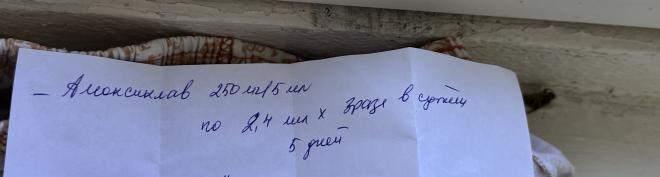 - Амоксиклав 250 мг/5 мл
по 2,4 мл х 3 раза в сутки
5 дней